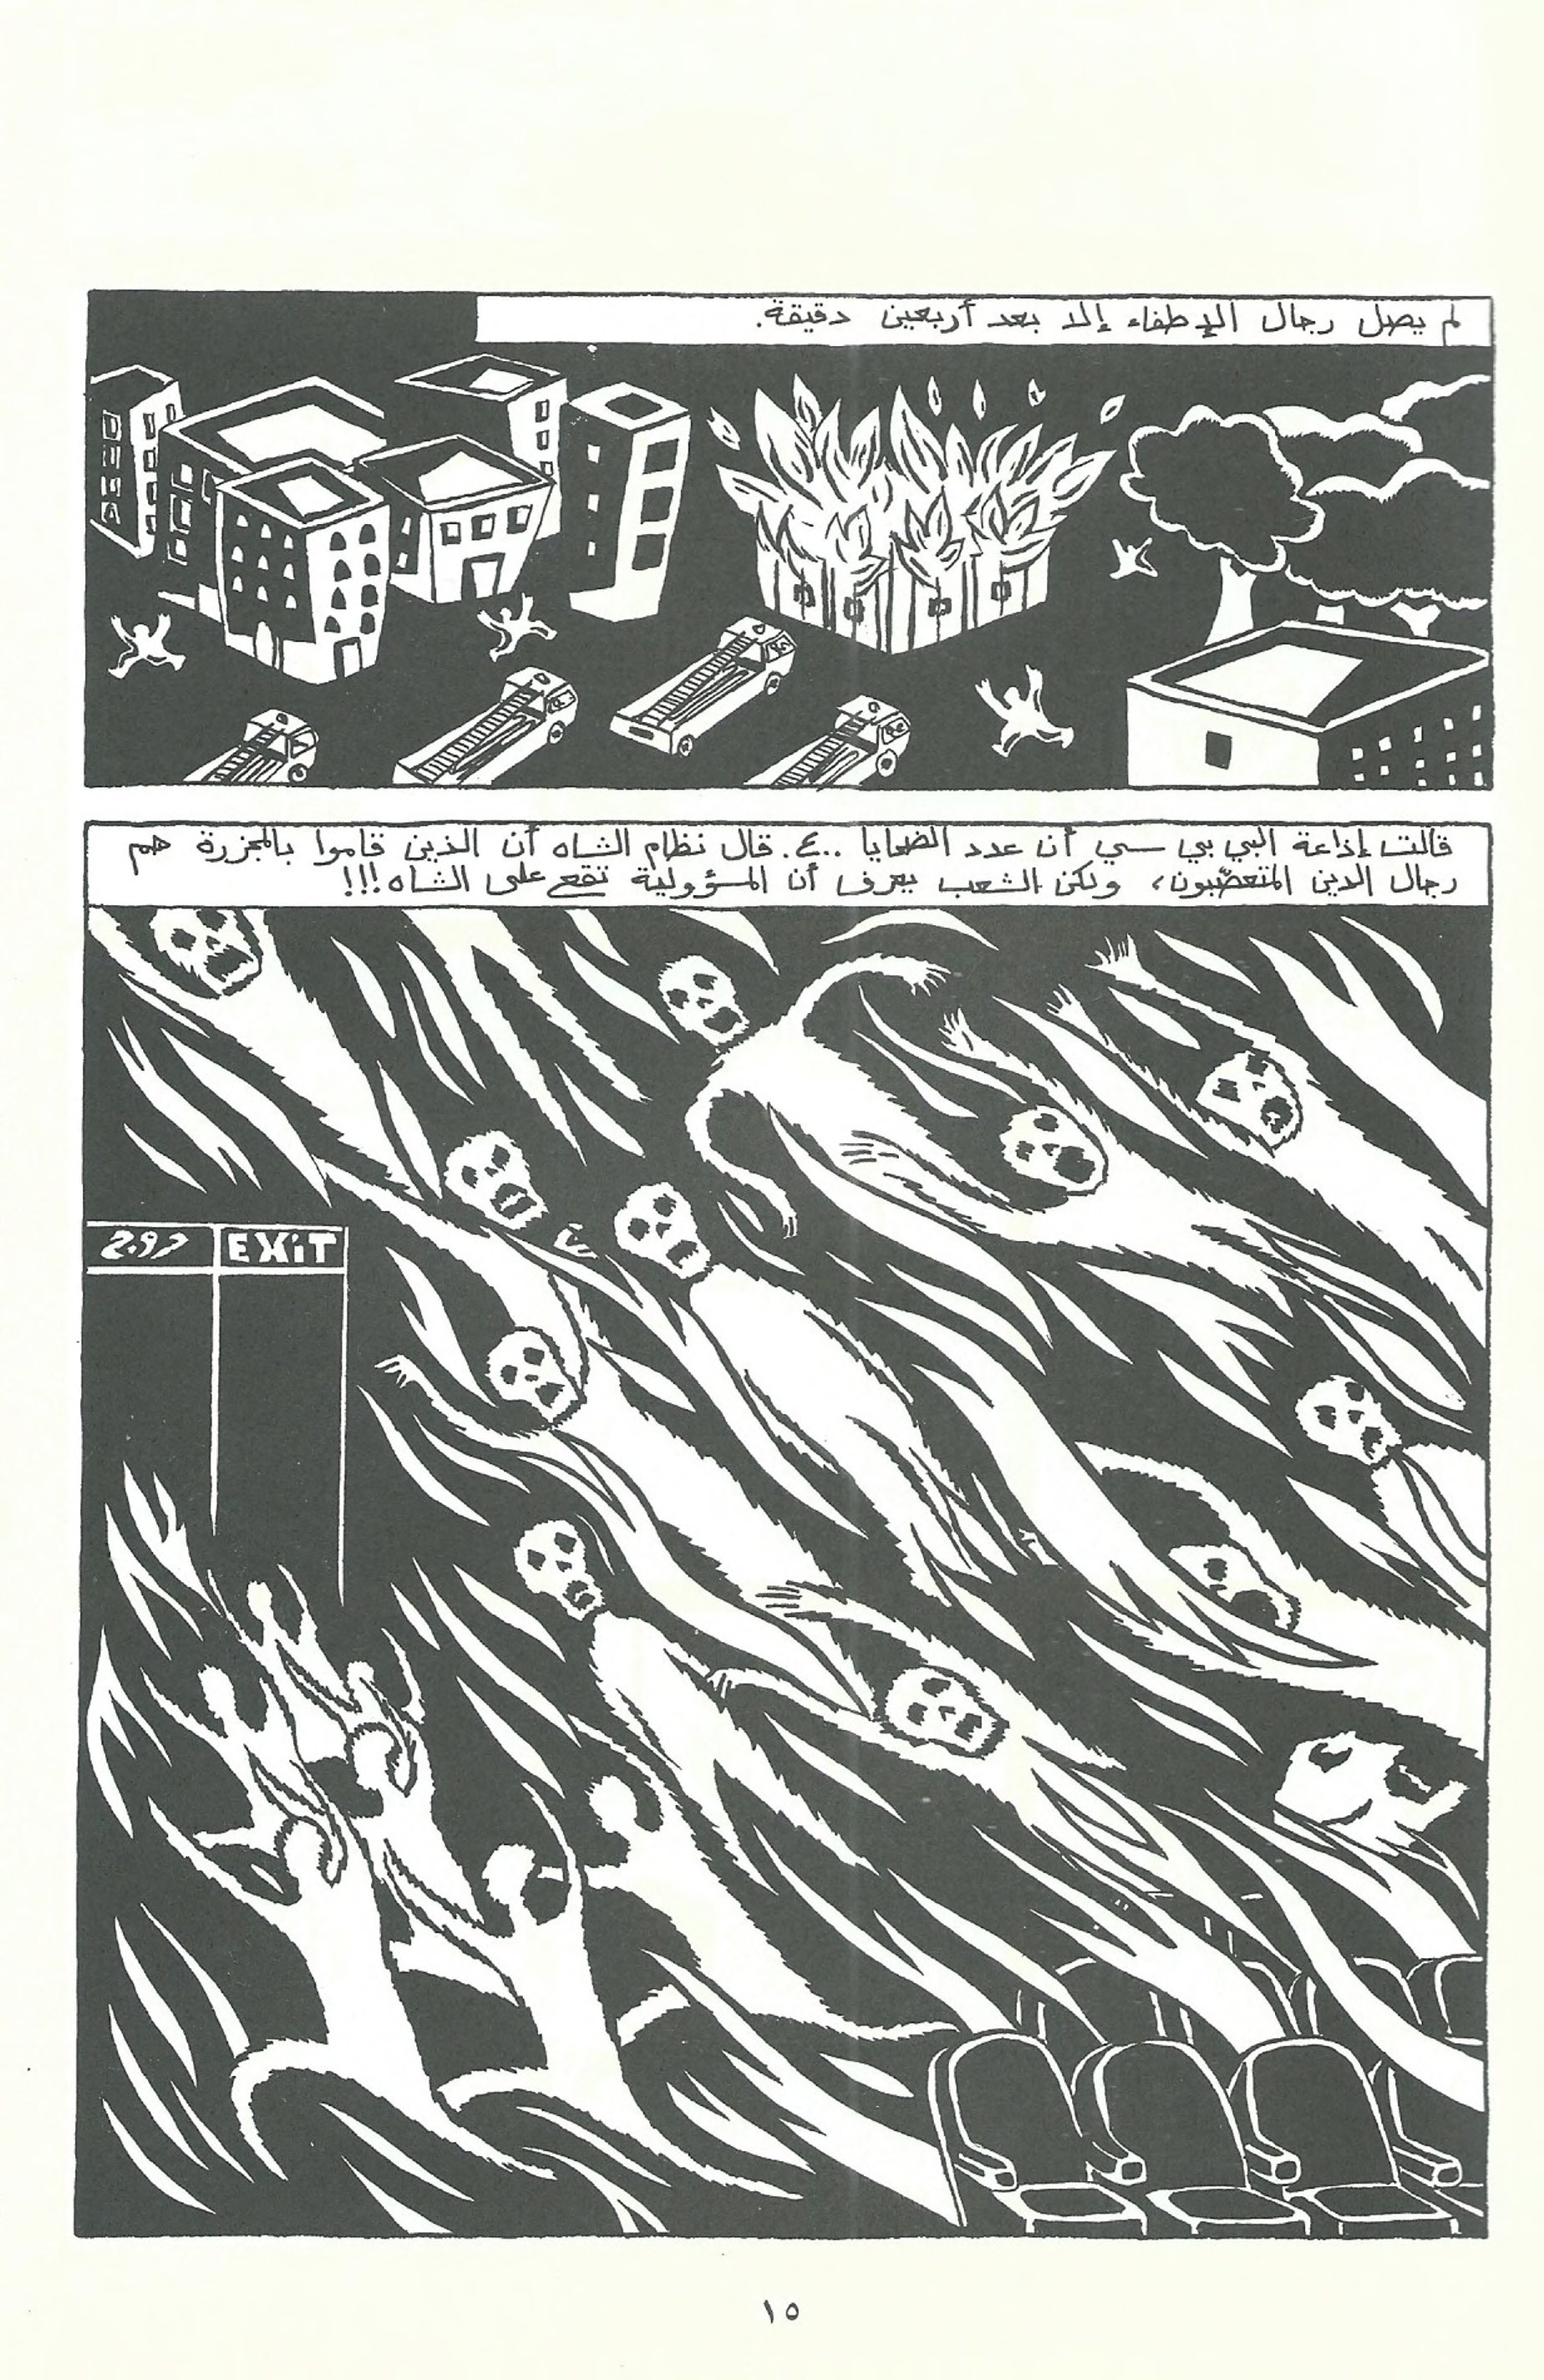 لم يصل رجال الإطفاء إلا بعد أربعين دقيقة.
قالت إذاعة البي بي سي أن عدد الضحايا ٤٠٠. قال نظام الشاه أن الذين قاموا بالمجزرة هم
رجال الدين المتعصّبون، ولكن الشعب يعرف أن المسؤولية تقع على الشاه!!!
EXiT
١٥